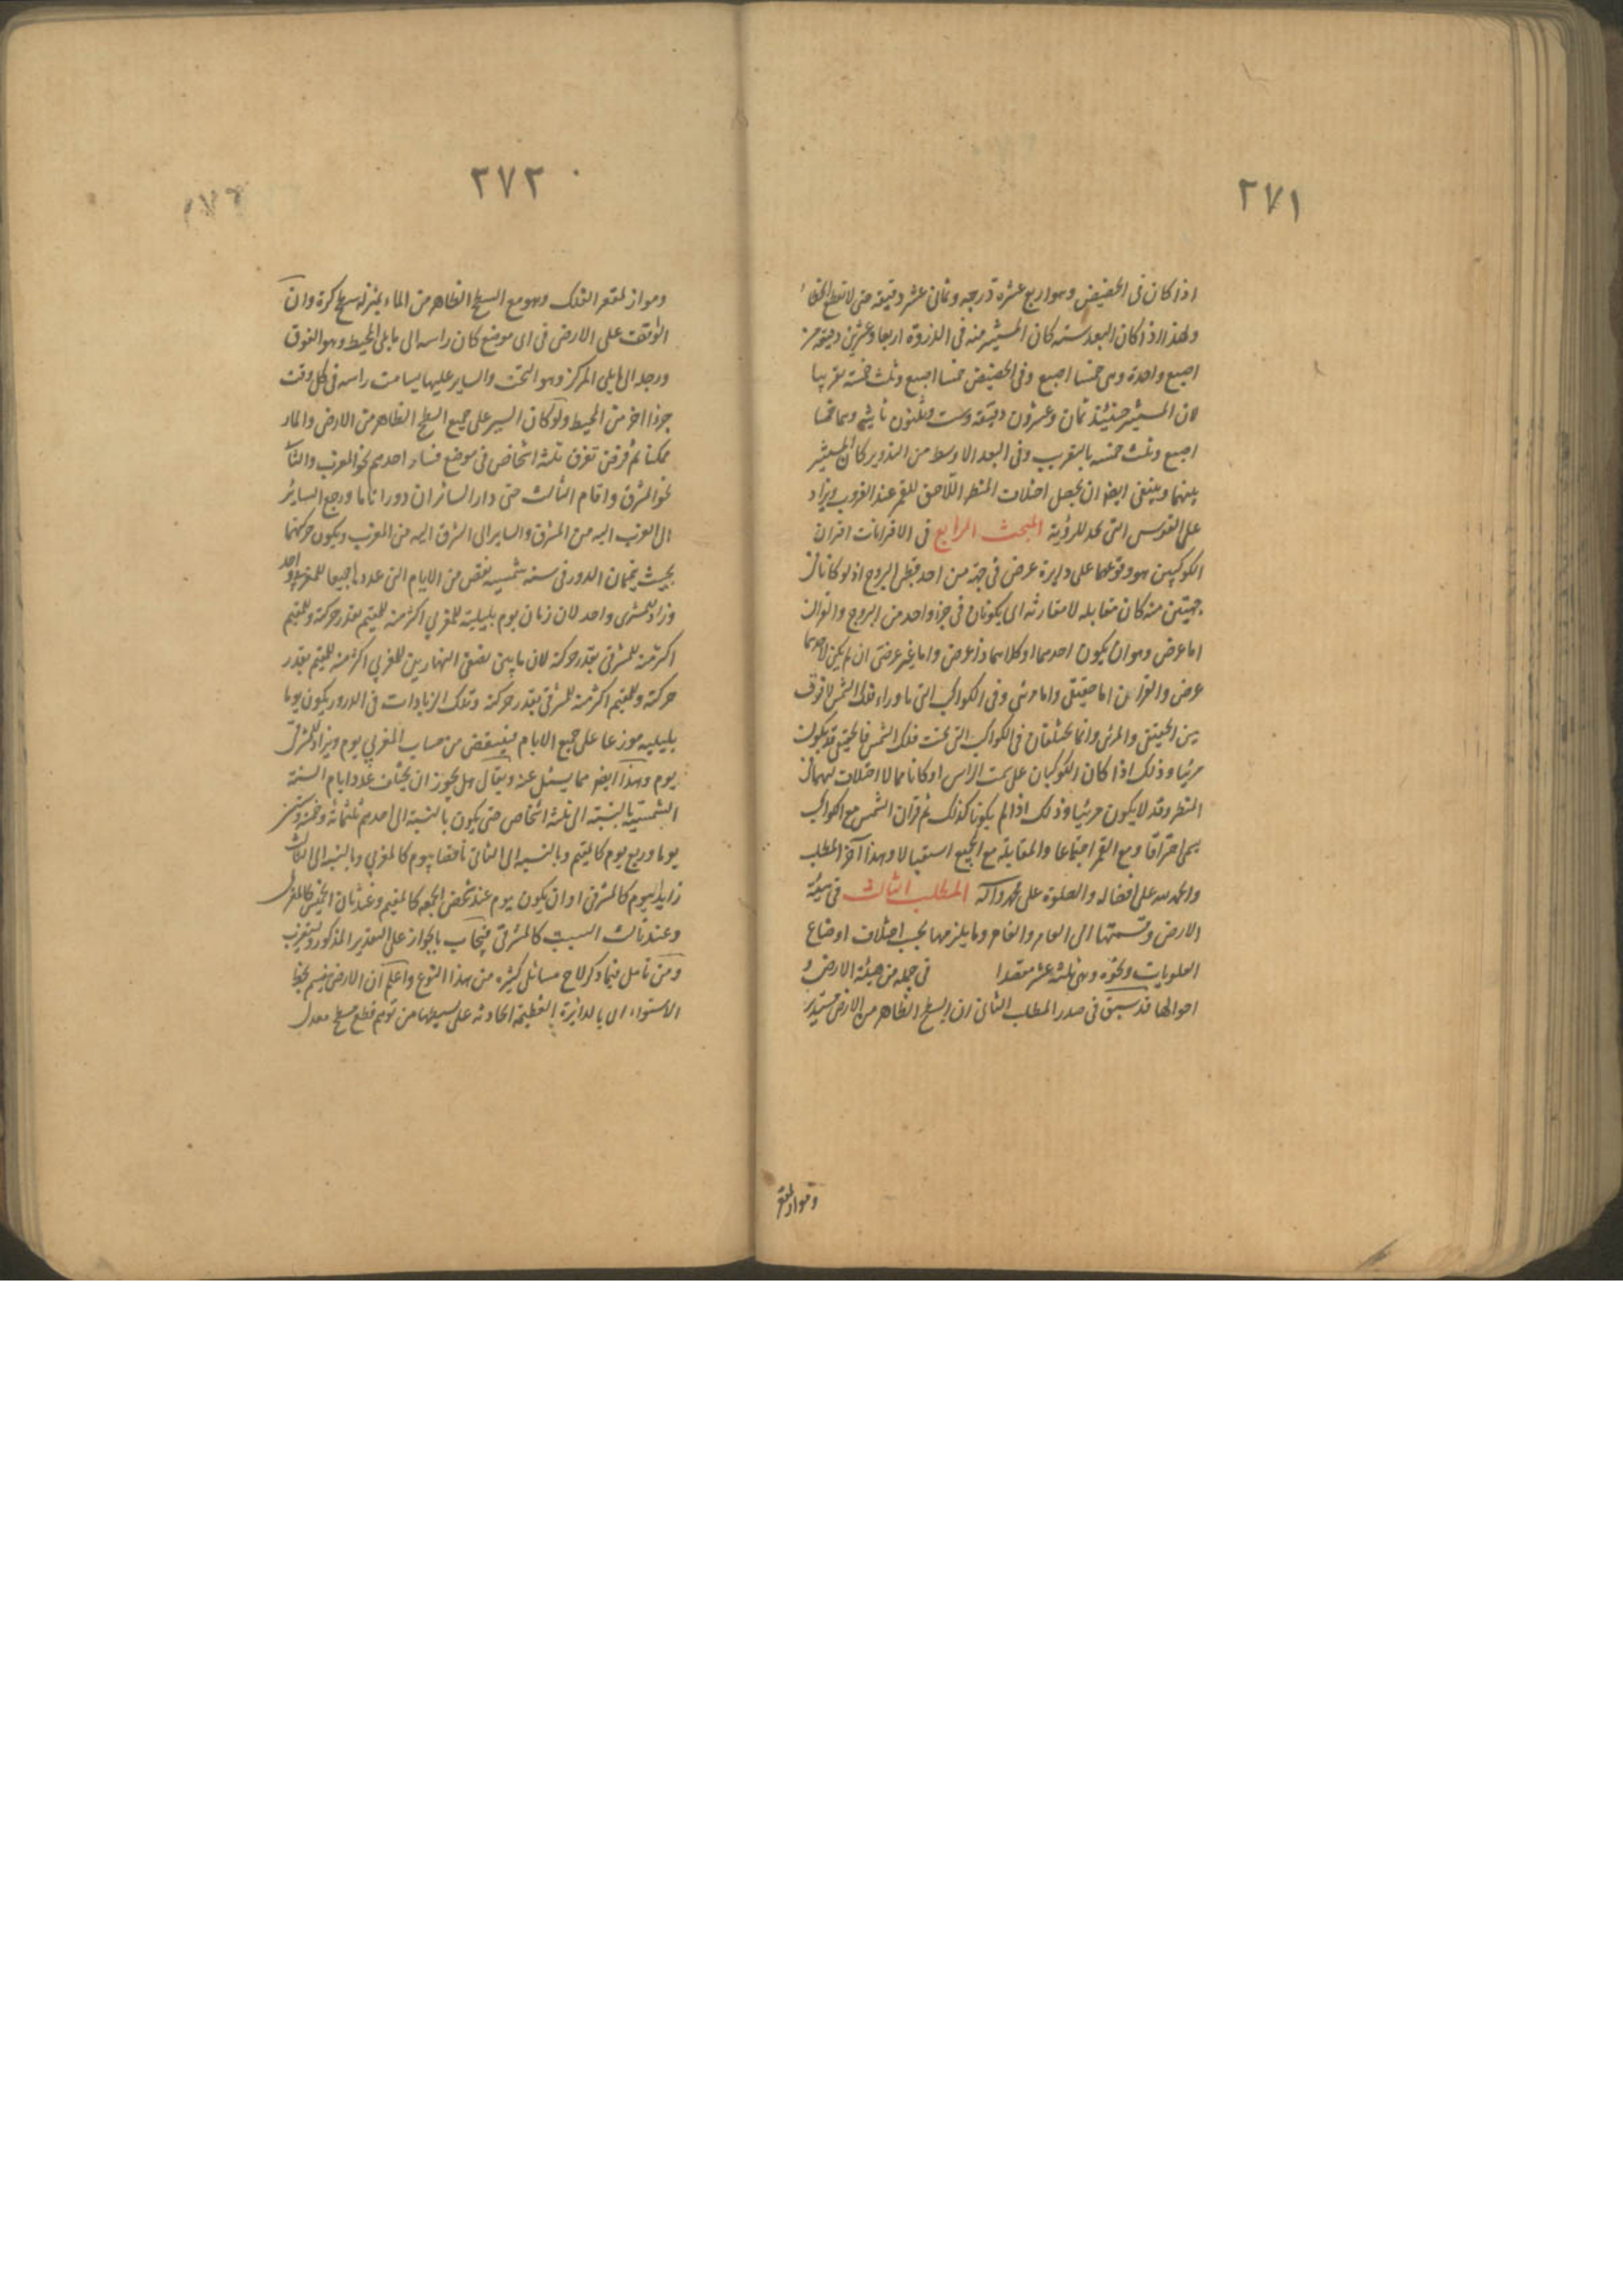 ٢٧١
اذا كان فى الحضيض وهو اربع عشرة درجه وثمانى عشر دقيقة حتى لا تقطع
ولهذا اذا كان البعد ستة كان المستنير منه فى الذروة اربعا وعشرين دقيقة من
اصبع واحدة وهى خمسا اصبع وفى الحضيض خمسا اصبع وثلث خمسه تقريبا
لان المستنير حينئذ ثمان وعشرون دقيقة وست وثلثون ثانية وهما خمسا
اصبع وثلث خمسه بالتقريب وفى البعد الاوسط من التدوير كان المستنير
بينهما وينبغى ايضا ان يحصل اختلاف المنظر اللاحق للقمر عند الغروب ويزاد
على القوس التى تحد للرؤية المبحث الرابع فى الاقترانات اقتران
الكوكبين هو وقوعهما على دايرة عرض فى جهة من احد قطبى البروج اذ لو كانا فى
جهتين منه كان مقابله لا مقارنه اى يكونان فى جزء واحد من البروج والقران
اما عرضى وهو ان يكون احدهما او كلاهما ذا عرض واما غير عرضى ان لم يكن لاحدهما
عرض والقران اما حقيقى واما مرئى وفى الكواكب التى ما وراء فلك الشمس لا فرق
بين الحقيقى والمرئى وانما يختلفان فى الكواكب التى تحت فلك الشمس فالحقيقى قد يكون
مرئيا وذلك اذا كان الكوكبان على سمت الراس او كانا مما لا اختلاف لهما فى
المنظر وقد لا يكون مرئيا وذلك اذا لم يكونا كذلك ثم قران الشمس مع الكواكب
يسمى احتراقا ومع القمر اجتماعا والمقابلة مع الجميع استقبالا وهذا آخر المطلب
والحمد لله على افضاله والصلوة على محمد وآله المطلب الثالث فى هيئة
الارض وقسمتها الى العامر والغامر وما يلزمها بحسب اختلاف اوضاع
العلويات ونحوه وهى ثلثة عشر مقصدا فى جمله من هيئة الارض و
احوالها قد سبق فى صدر المطلب الثانى ان السطح الظاهر من الارض مستدير
ومواز لمقعر
٢٧٢
ومواز لمقعر الفلك وهو مع السطح الظاهر من الماء بمنزلة سطح كرة وان
الواقف على الارض فى اى موضع كان راسه الى ما يلى المحيط وهو الفوق
ورجله الى ما يلى المركز وهو التحت والساير عليها يسامت راسه فى كل وقت
جزءا اخر من المحيط ولو كان السير على جميع السطح الظاهر من الارض والماء
ممكنا ثم فرض تفرق ثلثة اشخاص فى موضع فسار احدهم نحو المغرب والثانى
نحو المشرق واقام الثالث حتى دار السائران دورا تاما ورجع السائر
الى الغرب اليه من المشرق والساير الى الشرق اليه من المغرب ويكون حركتهما
بحيث يتمان الدور فى سنة شمسيه نقص من الايام التى عددها جميعا للمغربى واحد
وزاد للمشرقى واحد لان زمان يوم بليلته للمغربى اكثر منه للمقيم بقدر حركته وللمقيم
اكثر منه للمشرقى بقدر حركته لان ما بين نصفى النهارين للغربى اكثر منه للمقيم بقدر
حركته وللمقيم اكثر منه للشرقى بقدر حركته وتلك الزيادات فى الدور يكون يوما
بليليه موزعا على جميع الايام فينقص من حساب المغربى يوم ويزاد للمشرقى
يوم وهذا ايضا مما يسئل عنه ويقال هل يجوز ان يختلف عدد ايام السنة
الشمسية بالنسبة الى ثلثة اشخاص حتى يكون بالنسبة الى احدهم ثلثمائة وخمسة وستين
يوما وربع يوم كالمقيم وبالنسبه الى الثانى ناقصا بيوم كالمغربى وبالنسبه الى الثالث
زايدا بيوم كالمشرقى او ان يكون يوم عند شخص الجمعه كالمقيم وعند ثان الخميس كالمغربى
وعند ثالث السبت كالمشرقى فيجاب بالجواز على التقدير المذكور ويستغرب
ومن تامل فيما ذكر لاح مسائل كثيره من هذا النوع واعلم ان الارض ينقسم بخط
الاستواء اى بالدائرة العظيمة الحادثه على بسيطها من توهم قطع سطح معدل